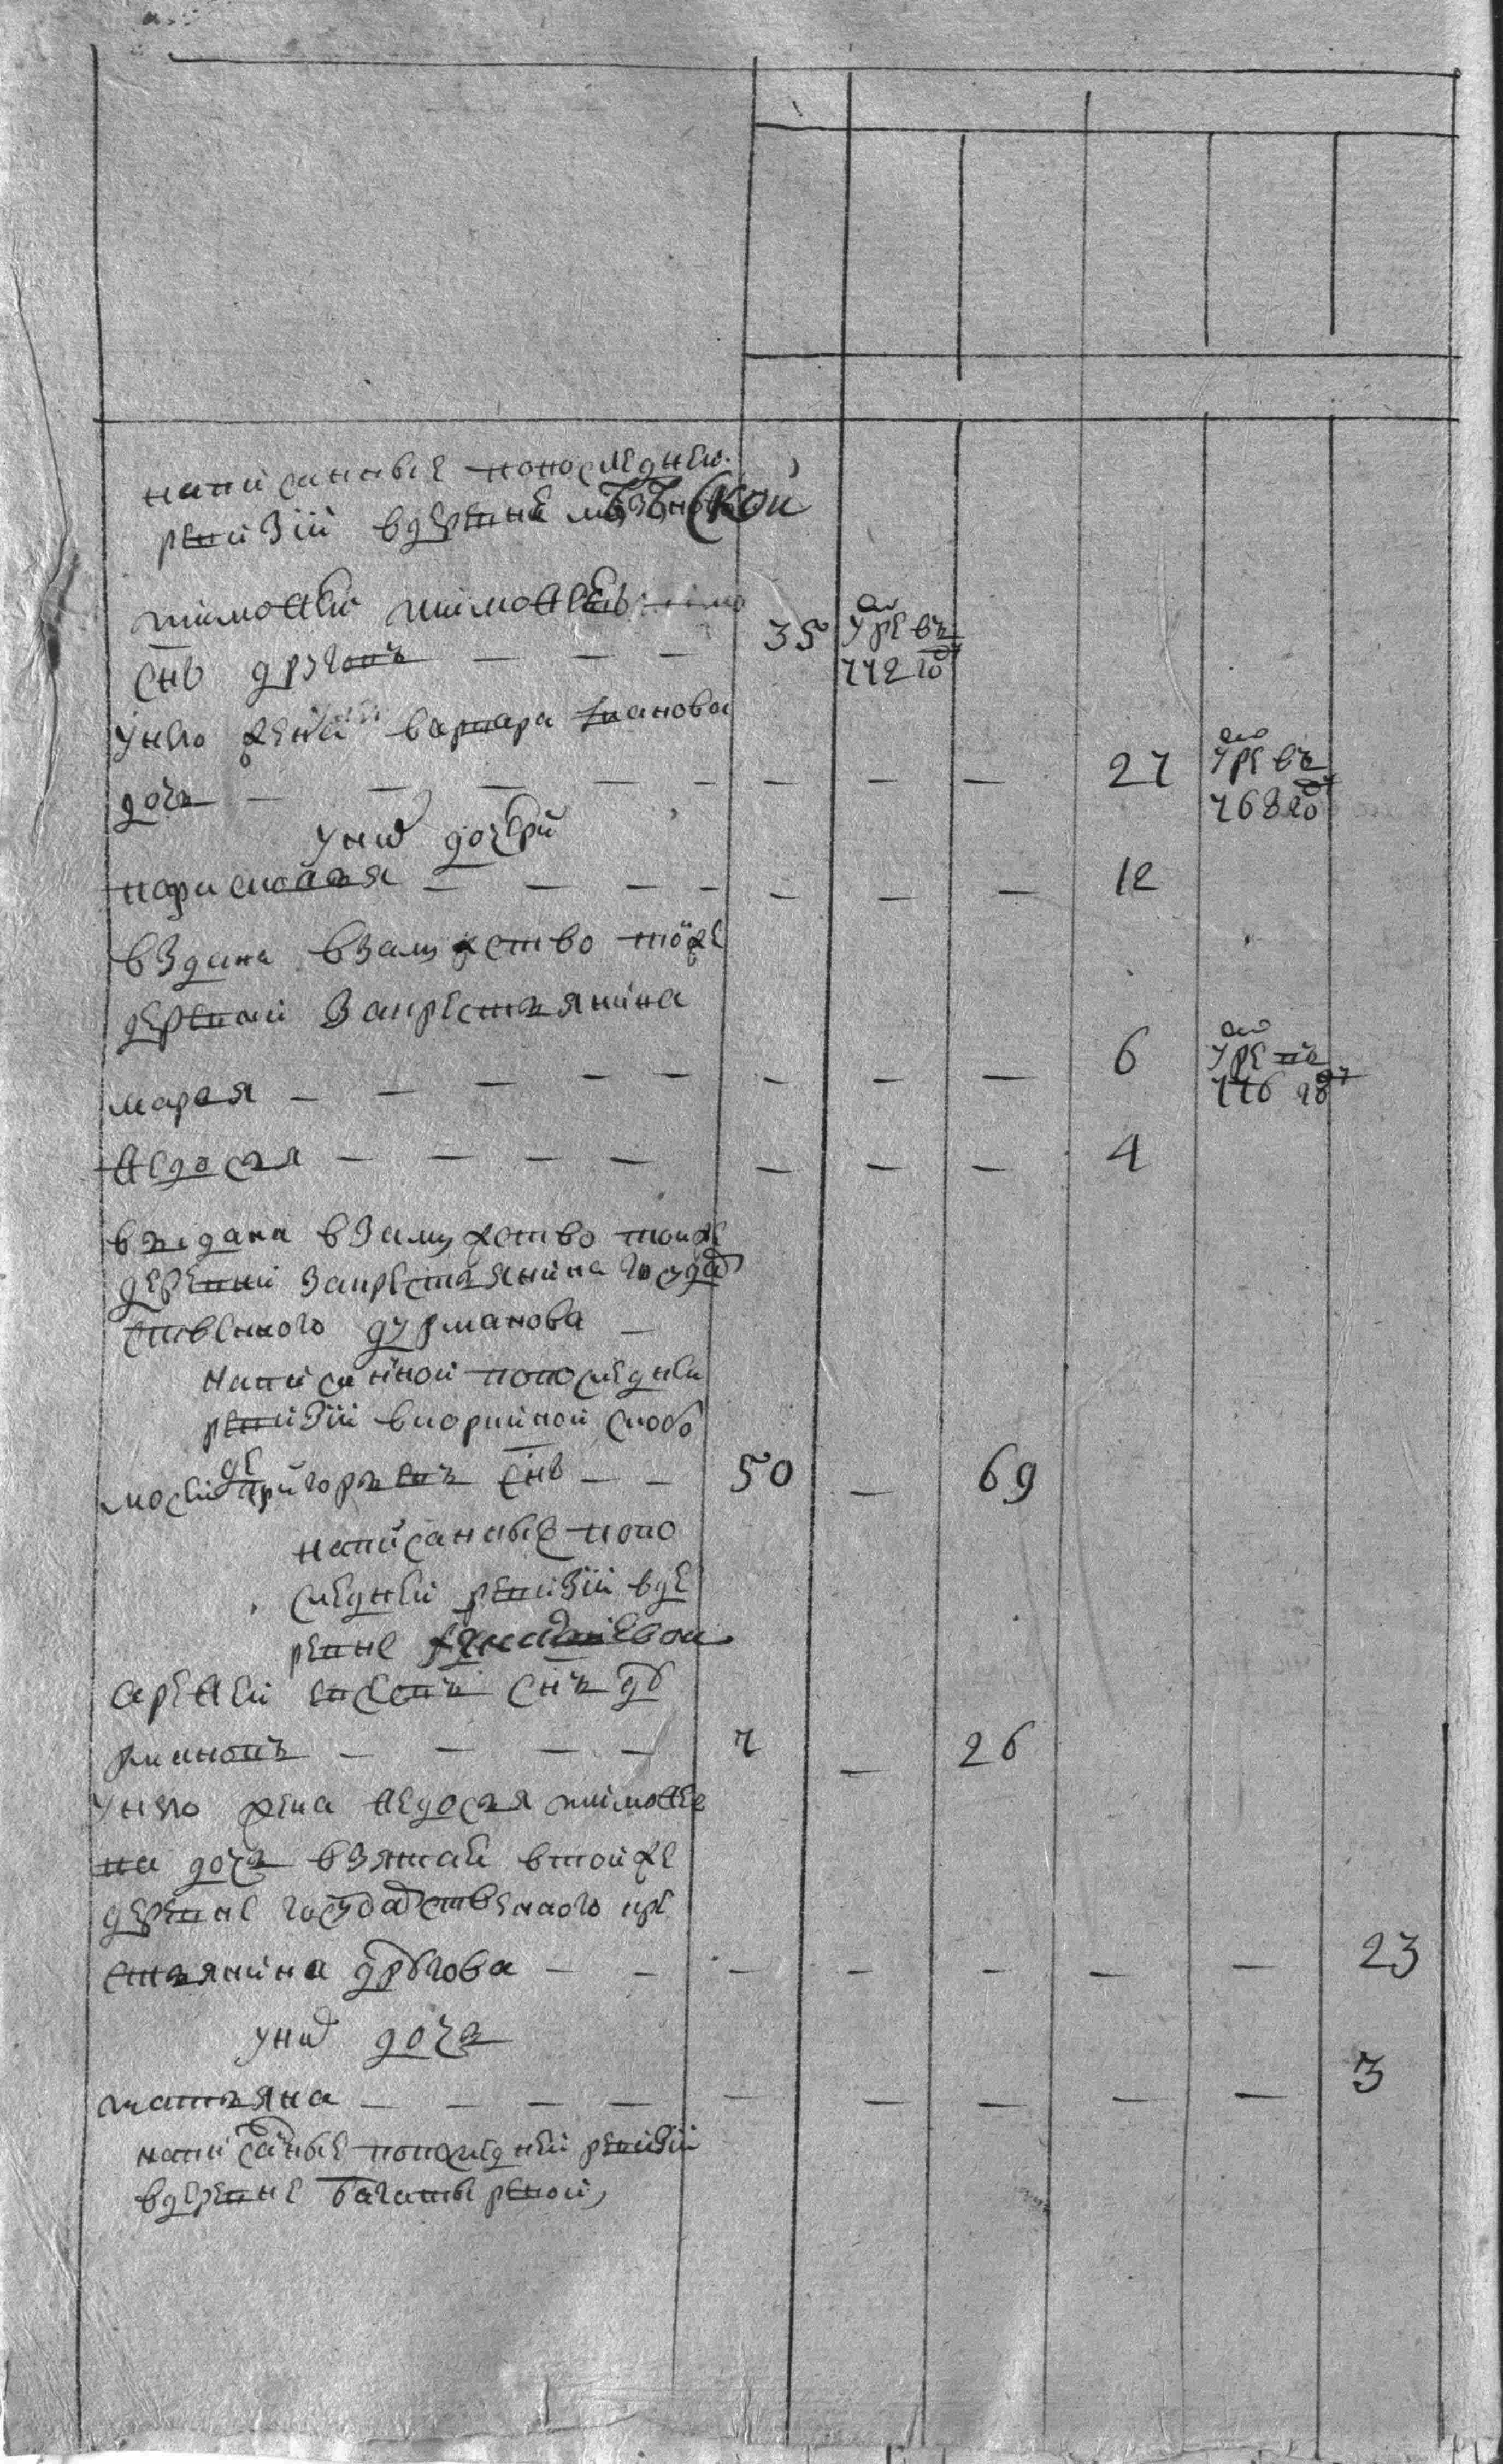 написанные попоследнеи
ревизiи вдеревне скои
тимоѳеи тимоѳеевъ
снъ друговъ — — — 35 умре въ 772 го
унего жена варвара ивановa
дочь — — — — — — — — 27 умре въ 768 го
унихъ дочери
 — — — — — — — 12
выдана взамужство тоиже
деревни закрестьянина
марья — — — — — — — — 6 умре въ 776 го
ѳедосья — — — — — — — 4
выдана взамужство тоиже
деревни закрестьянина государ
ственного дурманова —
написанной попоследнеи
ревизiи слобо
де
мосеи григорьевъ снъ — — 50 — 69
написанные попо
следнеи ревизiи вде
ревне
снъ
— — — — 7 — 26
унего жена ѳедосья тимоѳее
ва дочь взятая втоиже
деревне государственного кре
стьянина другова — — — — — — — 23
унихъ дочь
татьяна — — — — — — — — — 3
написанные попоследнеи ревизiи
вдеревне багатыревой